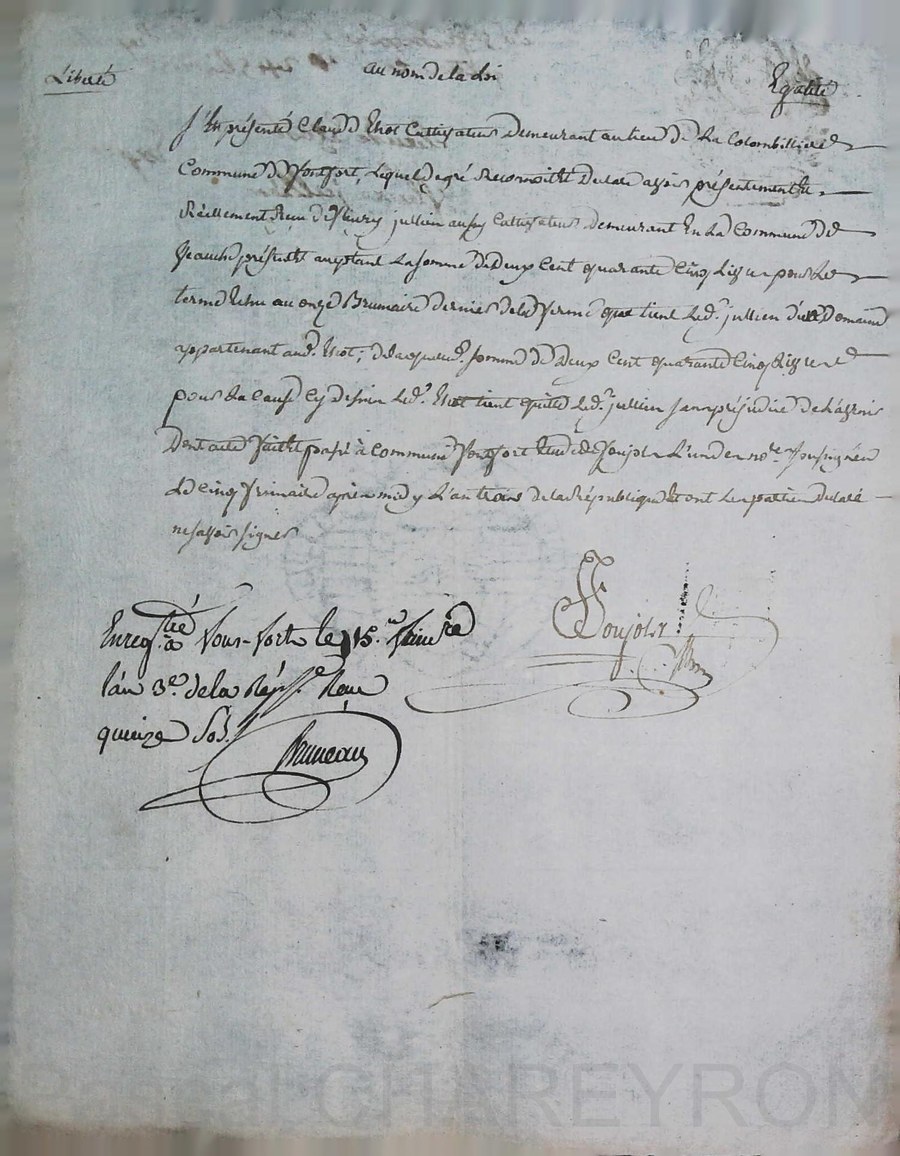 Liberté au nom de la Loi Egalité
Fut présenté Claude Thiot Cultivateur demeurant au lieu de La Colombilliere
Commune de Vonsfort, lequel de gré Reconnoit declare avoir présentement et
Réellement Reçu de fleury jullien aussy Cultivateur demeurant En La Commune de
présent acceptant La somme de Deux Cent quarante Cinq Livre pour Le
terme Echu au onze Brumaire dernier de la ferme que tient Led. jullien d'un Domaine
appartenant aud. Thiot; de laquelle somme de Deux Cent quarante Cinq Livre
pour La cause Cy dessus Led. Thiot tient quitte Led. jullien sans préjudice de
Dont acte fait et passé à Commune Vonsfort Etude de Soujol L'un des no.re soussignés
Le Cinq frimaire après midy L'an trois de la République Et ont Les parties declaré
ne savoir signer
Soujol
Enregtré à Vons-fort le 15.e frimre
l'an 3.e de la Rép. Reçu
quinze Sols
Bruneau
Pascal CHAREYRON